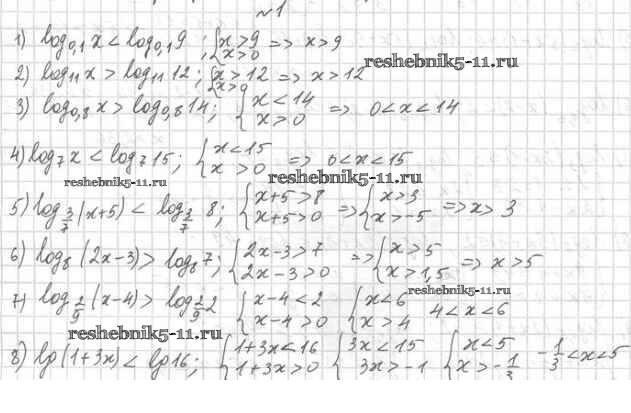 №1
1) log₀,₁x < log₀,₁9 ; {x>9 x>0 => x>9
reshebnik5-11.ru
2) log₁₁x > log₁₁12 ; {x>12 x>0 => x>12
3) log₀,₈x > log₀,₈14 ; {x<14 x>0 => 0<x<14
4) log₇x < log₇15 ; {x<15 x>0 => 0<x<15
reshebnik5-11.ru
reshebnik5-11.ru
5) log_{3/7}(x+5) < log_{3/7}8 ; {x+5>8 x+5>0 => {x>3 x>-5 => x>3
6) log₈(2x-3) > log₈7 ; {2x-3>7 2x-3>0 => {x>5 x>1,5 => x>5
reshebnik5-11.ru
7) log_{2/9}(x-4) > log_{2/9}2 {x-4<2 x-4>0 {x<6 x>4 4<x<6
reshebnik5-11.ru
8) lg(1+3x) < lg16 ; {1+3x<16 1+3x>0 {3x<15 3x>-1 {x<5 x>-1/3 -1/3<x<5